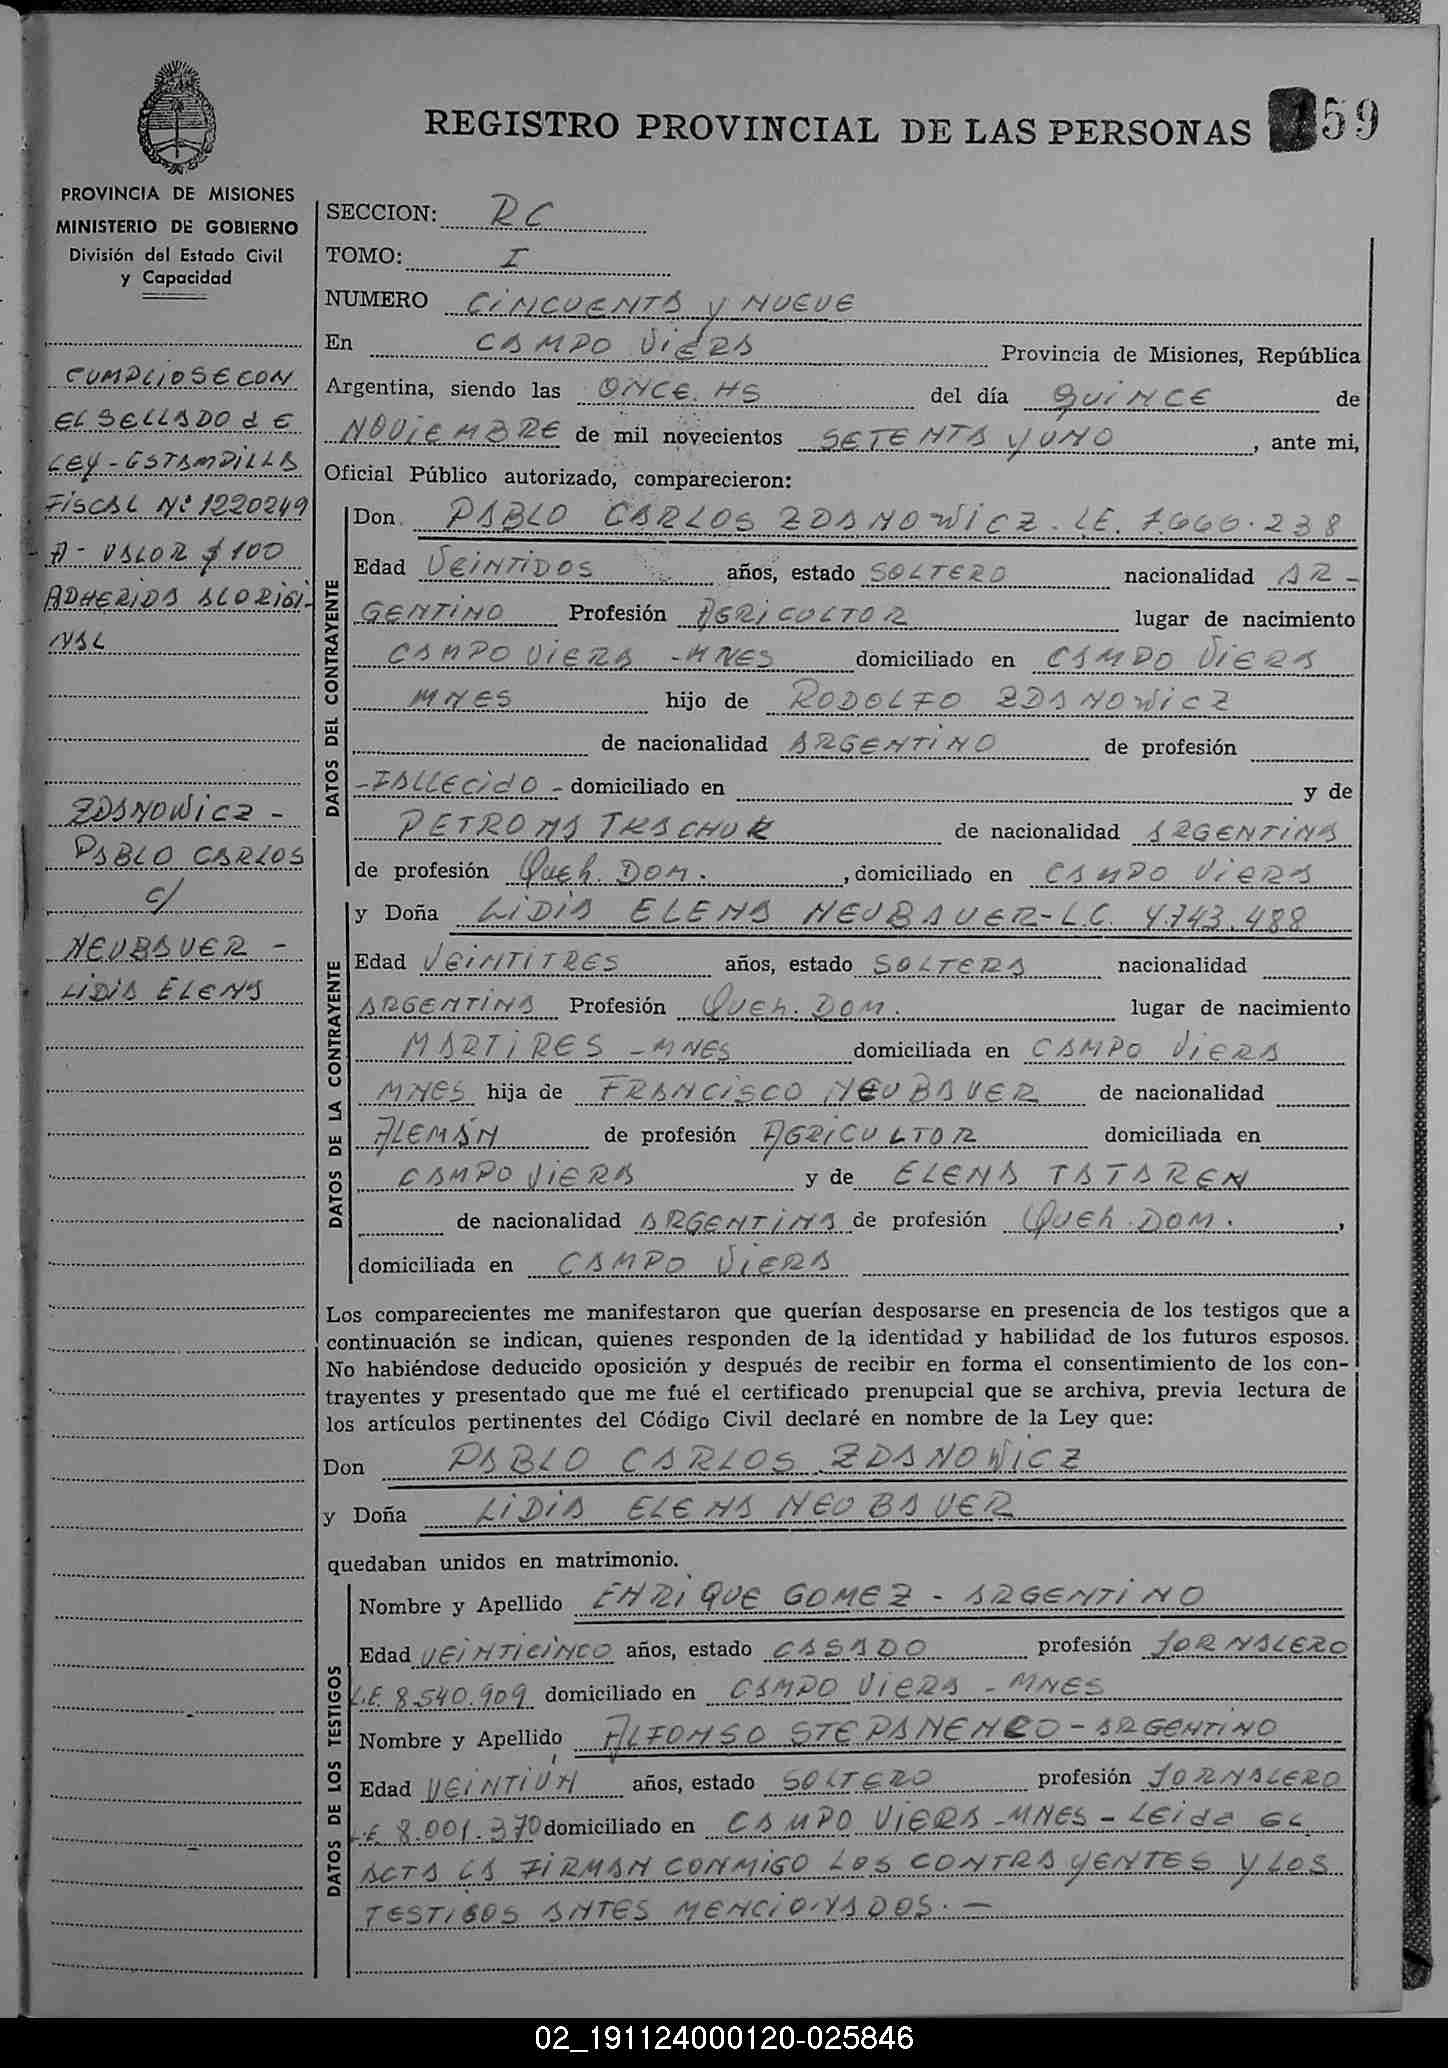 REGISTRO PROVINCIAL DE LAS PERSONAS 159
PROVINCIA DE MISIONES
MINISTERIO DE GOBIERNO
División del Estado Civil
y Capacidad
CUMPLIOSE CON
EL SELLADO dE
LEY - ESTAMPILLA
FISCAL Nº 1220249
A - VALOR $ 100
ADHERIDA AL ORIGI-
NAL
ZDANOWICZ -
PABLO CARLOS
c/
NEUBAUER -
LIDIA ELENA
SECCION: RC
TOMO: I
NUMERO CINCUENTA y NUEVE
En CAMPO VIERA Provincia de Misiones, República
Argentina, siendo las ONCE HS del día QUINCE de
NOVIEMBRE de mil novecientos SETENTA y UNO, ante mi,
Oficial Público autorizado, comparecieron:
DATOS DEL CONTRAYENTE
Don PABLO CARLOS ZDANOWICZ - LE. 7.666.238
Edad VEINTIDOS años, estado SOLTERO nacionalidad AR-
GENTINO Profesión AGRICULTOR lugar de nacimiento
CAMPO VIERA - MNES domiciliado en CAMPO VIERA
MNES hijo de RODOLFO ZDANOWICZ
de nacionalidad ARGENTINO de profesión
- FALLECIDO - domiciliado en y de
PETRONA TKACHUK de nacionalidad ARGENTINA
de profesión Queh. DOM. , domiciliado en CAMPO VIERA
DATOS DE LA CONTRAYENTE
y Doña LIDIA ELENA NEUBAUER - L.C. 4.743.488
Edad VEINTITRES años, estado SOLTERA nacionalidad
ARGENTINA Profesión Queh. DOM. lugar de nacimiento
MARTIRES - MNES domiciliada en CAMPO VIERA
MNES hija de FRANCISCO NEUBAUER de nacionalidad
ALEMÁN de profesión AGRICULTOR domiciliada en
CAMPO VIERA y de ELENA TATAREN
de nacionalidad ARGENTINA de profesión Queh. DOM. ,
domiciliada en CAMPO VIERA
Los comparecientes me manifestaron que querían desposarse en presencia de los testigos que a
continuación se indican, quienes responden de la identidad y habilidad de los futuros esposos.
No habiéndose deducido oposición y después de recibir en forma el consentimiento de los con-
trayentes y presentado que me fué el certificado prenupcial que se archiva, previa lectura de
los artículos pertinentes del Código Civil declaré en nombre de la Ley que:
Don PABLO CARLOS ZDANOWICZ
y Doña LIDIA ELENA NEUBAUER
quedaban unidos en matrimonio.
DATOS DE LOS TESTIGOS
Nombre y Apellido ENRIQUE GOMEZ - ARGENTINO
Edad VEINTICINCO años, estado CASADO profesión JORNALERO
L.E. 8.540.909 domiciliado en CAMPO VIERA - MNES
Nombre y Apellido ALFONSO STEPANENCO - ARGENTINO
Edad VEINTIÚN años, estado SOLTERO profesión JORNALERO
L.E. 8.001.370 domiciliado en CAMPO VIERA - MNES - LEIDA EL
ACTA LA FIRMAN CONMIGO LOS CONTRAYENTES Y LOS
TESTIGOS ANTES MENCIONADOS. -
02_191124000120-025846